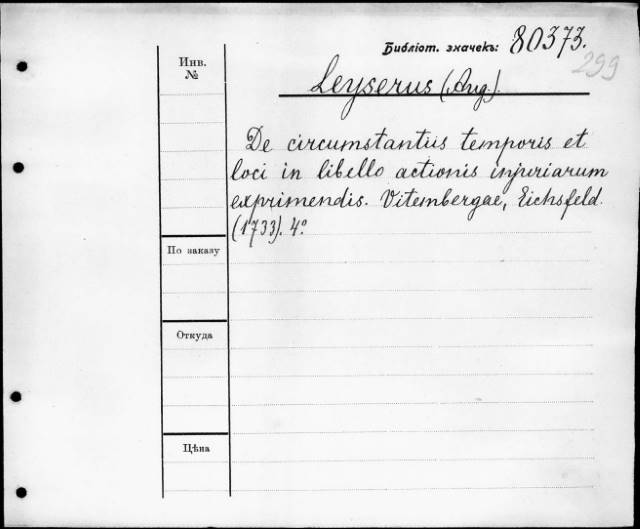 Библіот. значекъ: 80373.
299
Инв.
№
Leyserus (Aug.).
De circumstantiis temporis et
loci in libello actionis injuriarum
exprimendis. Vitembergae, Eichsfeld.
(1733). 4°.
По заказу
Откуда
Цѣна